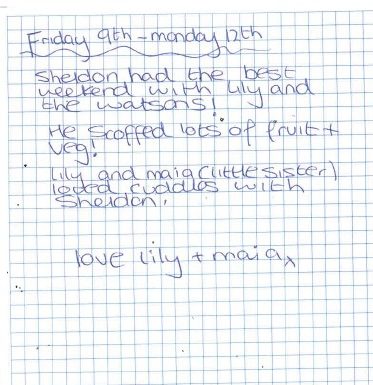 Friday 9th - monday 12th
Sheldon had the best
weekend with Lily and
the Watsons!
He scoffed lots of fruit +
veg!
Lily and maia (little sister)
loved cuddles with
Sheldon.
love Lily + maia x